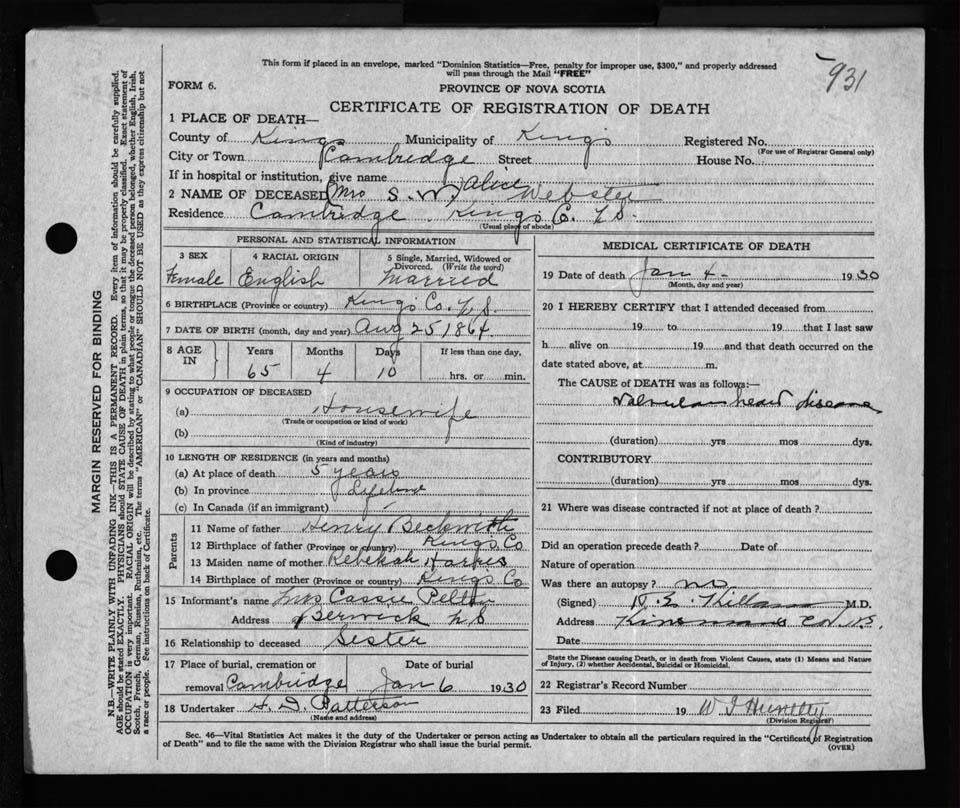 931
This form if placed in an envelope, marked "Dominion Statistics—Free, penalty for improper use, $300," and properly addressed
will pass through the Mail "FREE"
FORM 6.
PROVINCE OF NOVA SCOTIA
CERTIFICATE OF REGISTRATION OF DEATH
1 PLACE OF DEATH—
County of Kings Municipality of Kings Registered No.
(For use of Registrar General only)
City or Town Cambridge Street House No.
If in hospital or institution, give name
2 NAME OF DECEASED (Mrs S. W.) Alice Webster
Residence Cambridge Kings Co. N.S.
(Usual place of abode)
PERSONAL AND STATISTICAL INFORMATION
3 SEX 4 RACIAL ORIGIN 5 Single, Married, Widowed or
Divorced. (Write the word)
Female English Married
6 BIRTHPLACE (Province or country) Kings Co. N.S.
7 DATE OF BIRTH (month, day and year) Aug 25 1864
8 AGE IN Years Months Days If less than one day,
65 4 10 hrs. or min.
9 OCCUPATION OF DECEASED
(a) Housewife
(Trade or occupation or kind of work)
(b)
(Kind of industry)
10 LENGTH OF RESIDENCE (in years and months)
(a) At place of death 5 years
(b) In province Lifetime
(c) In Canada (if an immigrant)
Parents
11 Name of father Henry Beckwith
12 Birthplace of father (Province or country) Kings Co
13 Maiden name of mother Rebekah Harris
14 Birthplace of mother (Province or country) Kings Co
15 Informant's name Mrs Cassie
Address Berwick N S
16 Relationship to deceased Sister
17 Place of burial, cremation or Date of burial
removal Cambridge Jan 6 1930
18 Undertaker Patterson
(Name and address)
MEDICAL CERTIFICATE OF DEATH
19 Date of death Jan 4 1930
(Month, day and year)
20 I HEREBY CERTIFY that I attended deceased from
19 to 19 that I last saw
h alive on 19 and that death occurred on the
date stated above, at m.
The CAUSE of DEATH was as follows:—
Valvular heart disease
(duration) yrs mos dys.
CONTRIBUTORY
(duration) yrs mos dys.
21 Where was disease contracted if not at place of death?
Did an operation precede death? Date of
Nature of operation
Was there an autopsy? no
(Signed) M.D.
Address
Date
State the Disease causing Death, or in death from Violent Causes, state (1) Means and Nature
of Injury, (2) whether Accidental, Suicidal or Homicidal.
22 Registrar's Record Number
23 Filed 19 Huntley
(Division Registrar)
Sec. 46—Vital Statistics Act makes it the duty of the Undertaker or person acting as Undertaker to obtain all the particulars required in the "Certificate of Registration
of Death" and to file the same with the Division Registrar who shall issue the burial permit.
(OVER)
MARGIN RESERVED FOR BINDING
N.B.—WRITE PLAINLY WITH UNFADING INK—THIS IS A PERMANENT RECORD. Every item of information should be carefully supplied.
AGE should be stated EXACTLY. PHYSICIANS should STATE CAUSE OF DEATH in plain terms, so that it may be properly classified. Exact statement of
OCCUPATION is very important. RACIAL ORIGIN will be described by stating to what people or tongue the deceased person belonged, whether English, Irish,
Scotch, French, German, Russian, Ruthenian, etc. The terms "AMERICAN" or "CANADIAN" SHOULD NOT BE USED as they express citizenship but not
a race or people. See instructions on back of Certificate.